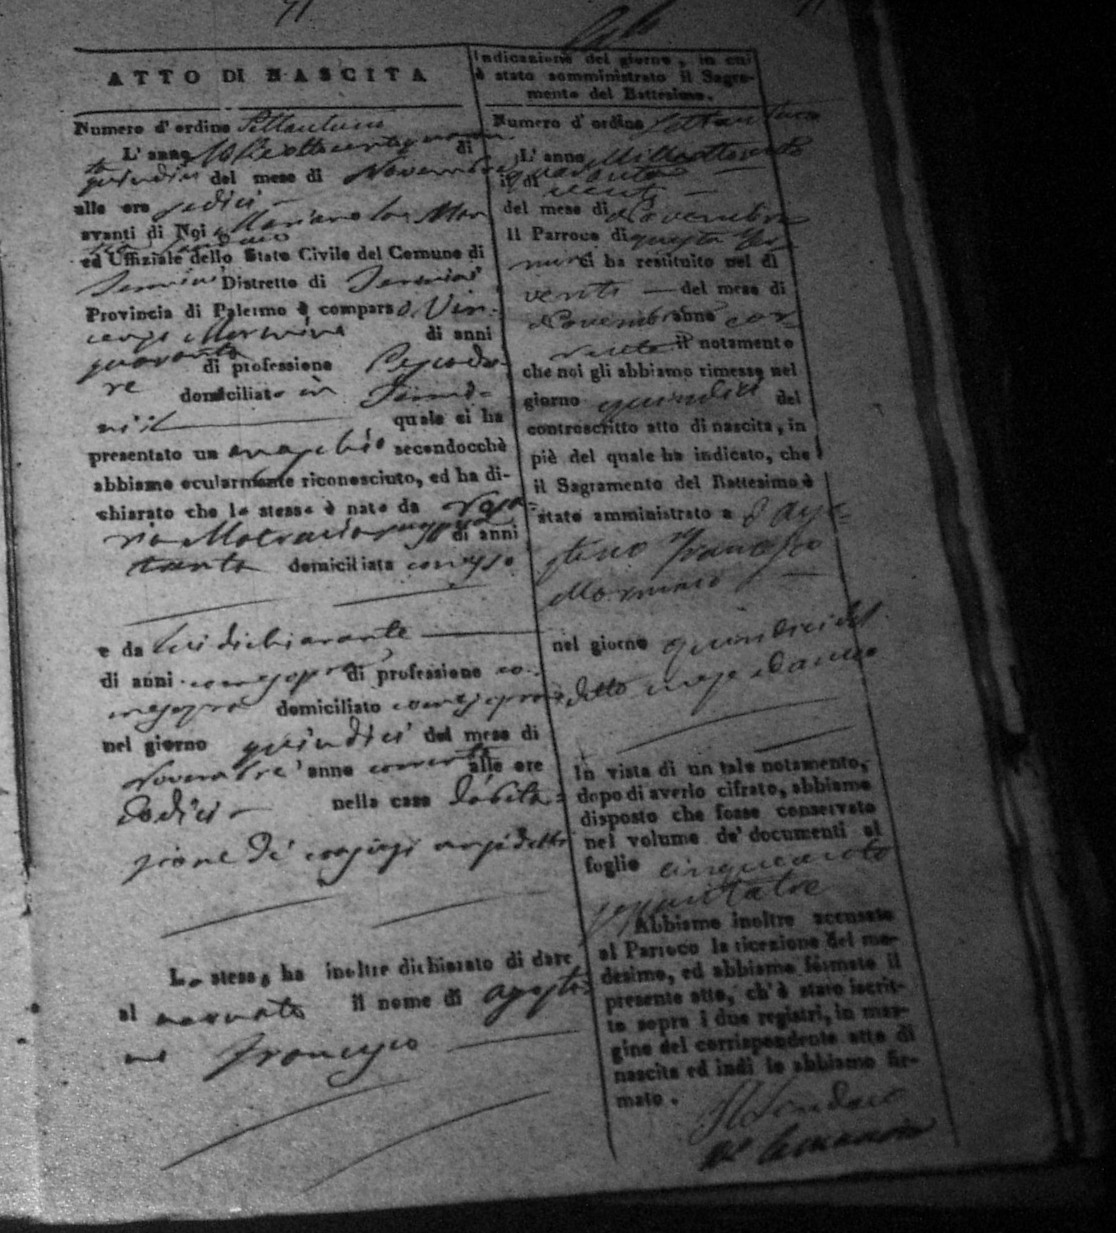 71
ATTO DI NASCITA
Numero d'ordine Settantuno
L'anno Milleottocentoquaran
ta di
quindici del mese di Novembre
alle ore sedici
avanti di Noi Mariano
Sindaco
ed Uffiziale dello Stato Civile del Comune di
Distretto di
Provincia di Palermo è comparso Vin-
cenzo Mormino di anni
quaranta
di professione Pescato-
re domiciliato in
quale ci ha
presentato un maschio secondocchè
abbiamo ocularmente riconosciuto, ed ha di-
chiarato che lo stesso è nato da Rosa
di anni
trenta domiciliata
e da lui dichiarante
di anni come sopra di professione co-
me sopra domiciliato come sopra
nel giorno quindici del mese di
Novembre anno corrente alle ore
dodici nella casa d'abita-
zione di coniugi
Lo stesso ha inoltre dichiarato di dare
al neonato il nome di Agosti-
no Francesco
Indicazione del giorno, in cui
è stato somministrato il Sagra-
mento del Battesimo.
Numero d'ordine Settantuno
L'anno Milleottocento
quaranta
il dì venti
del mese di Novembre
Il Parroco di questa
ci ha restituito nel dì
venti del mese di
Novembre anno cor-
rente il notamento
che noi gli abbiamo rimesso nel
giorno quindici del
controscritto atto di nascita, in
piè del quale ha indicato, che
il Sagramento del Battesimo è
stato amministrato a d'Ago-
stino Francesco
Mormino
nel giorno quindici del
detto mese ed anno
In vista di un tale notamento,
dopo di averlo cifrato, abbiamo
disposto che fosse conservato
nel volume de' documenti al
foglio cinquecento
settantatre
Abbiamo inoltre accusato
al Parroco la ricezione del me-
desimo, ed abbiamo formato il
presente atto, ch'è stato iscrit-
to sopra i due registri, in mar-
gine del corrispondente atto di
nascita ed indi lo abbiamo fir-
mato.
Il Sindaco